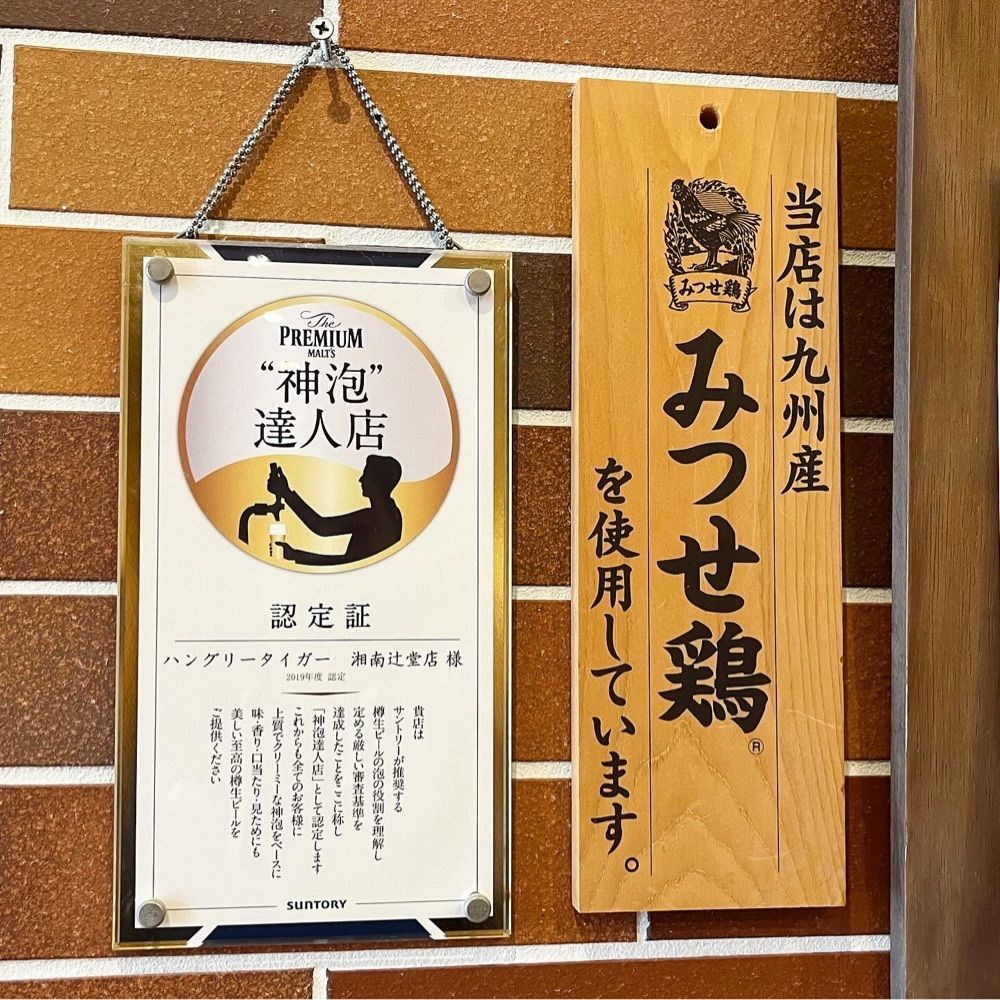 The
PREMIUM
MALT'S
“神泡”
達人店
認定証
ハングリータイガー　湘南辻堂店 様
2019年度 認定
貴店は
サントリーが推奨する
樽生ビールの泡の役割を理解し
定める厳しい審査基準を
達成したことをここに称し
「神泡達人店」として認定します
これからも全てのお客様に
上質でクリーミーな神泡をベースに
味・香り・口当たり・見ためにも
美しい至高の樽生ビールを
ご提供ください
SUNTORY
当店は九州産
みつせ鶏
みつせ鶏®
を使用しています。